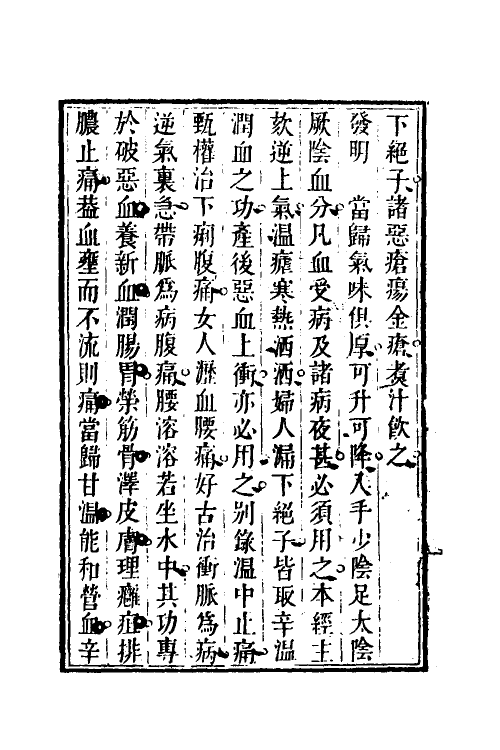 下絕子諸惡瘡瘍金瘡煑汁飮之
發明　當歸氣味俱厚可升可降入手少陰足太陰
厥陰血分凡血受病及諸病夜甚必須用之本經主
欬逆上氣溫瘧寒熱洒洒婦人漏下絕子皆取辛溫
潤血之功產後惡血上衝亦必用之别錄溫中止痛
甄權治下痢腹痛女人瀝血腰痛好古治衝脈爲病
逆氣裏急帶脈爲病腹痛腰溶溶若坐水中其功專
於破惡血養新血潤腸胃榮筋骨澤皮膚理癰疽排
膿止痛葢血壅而不流則痛當歸甘溫能和營血辛